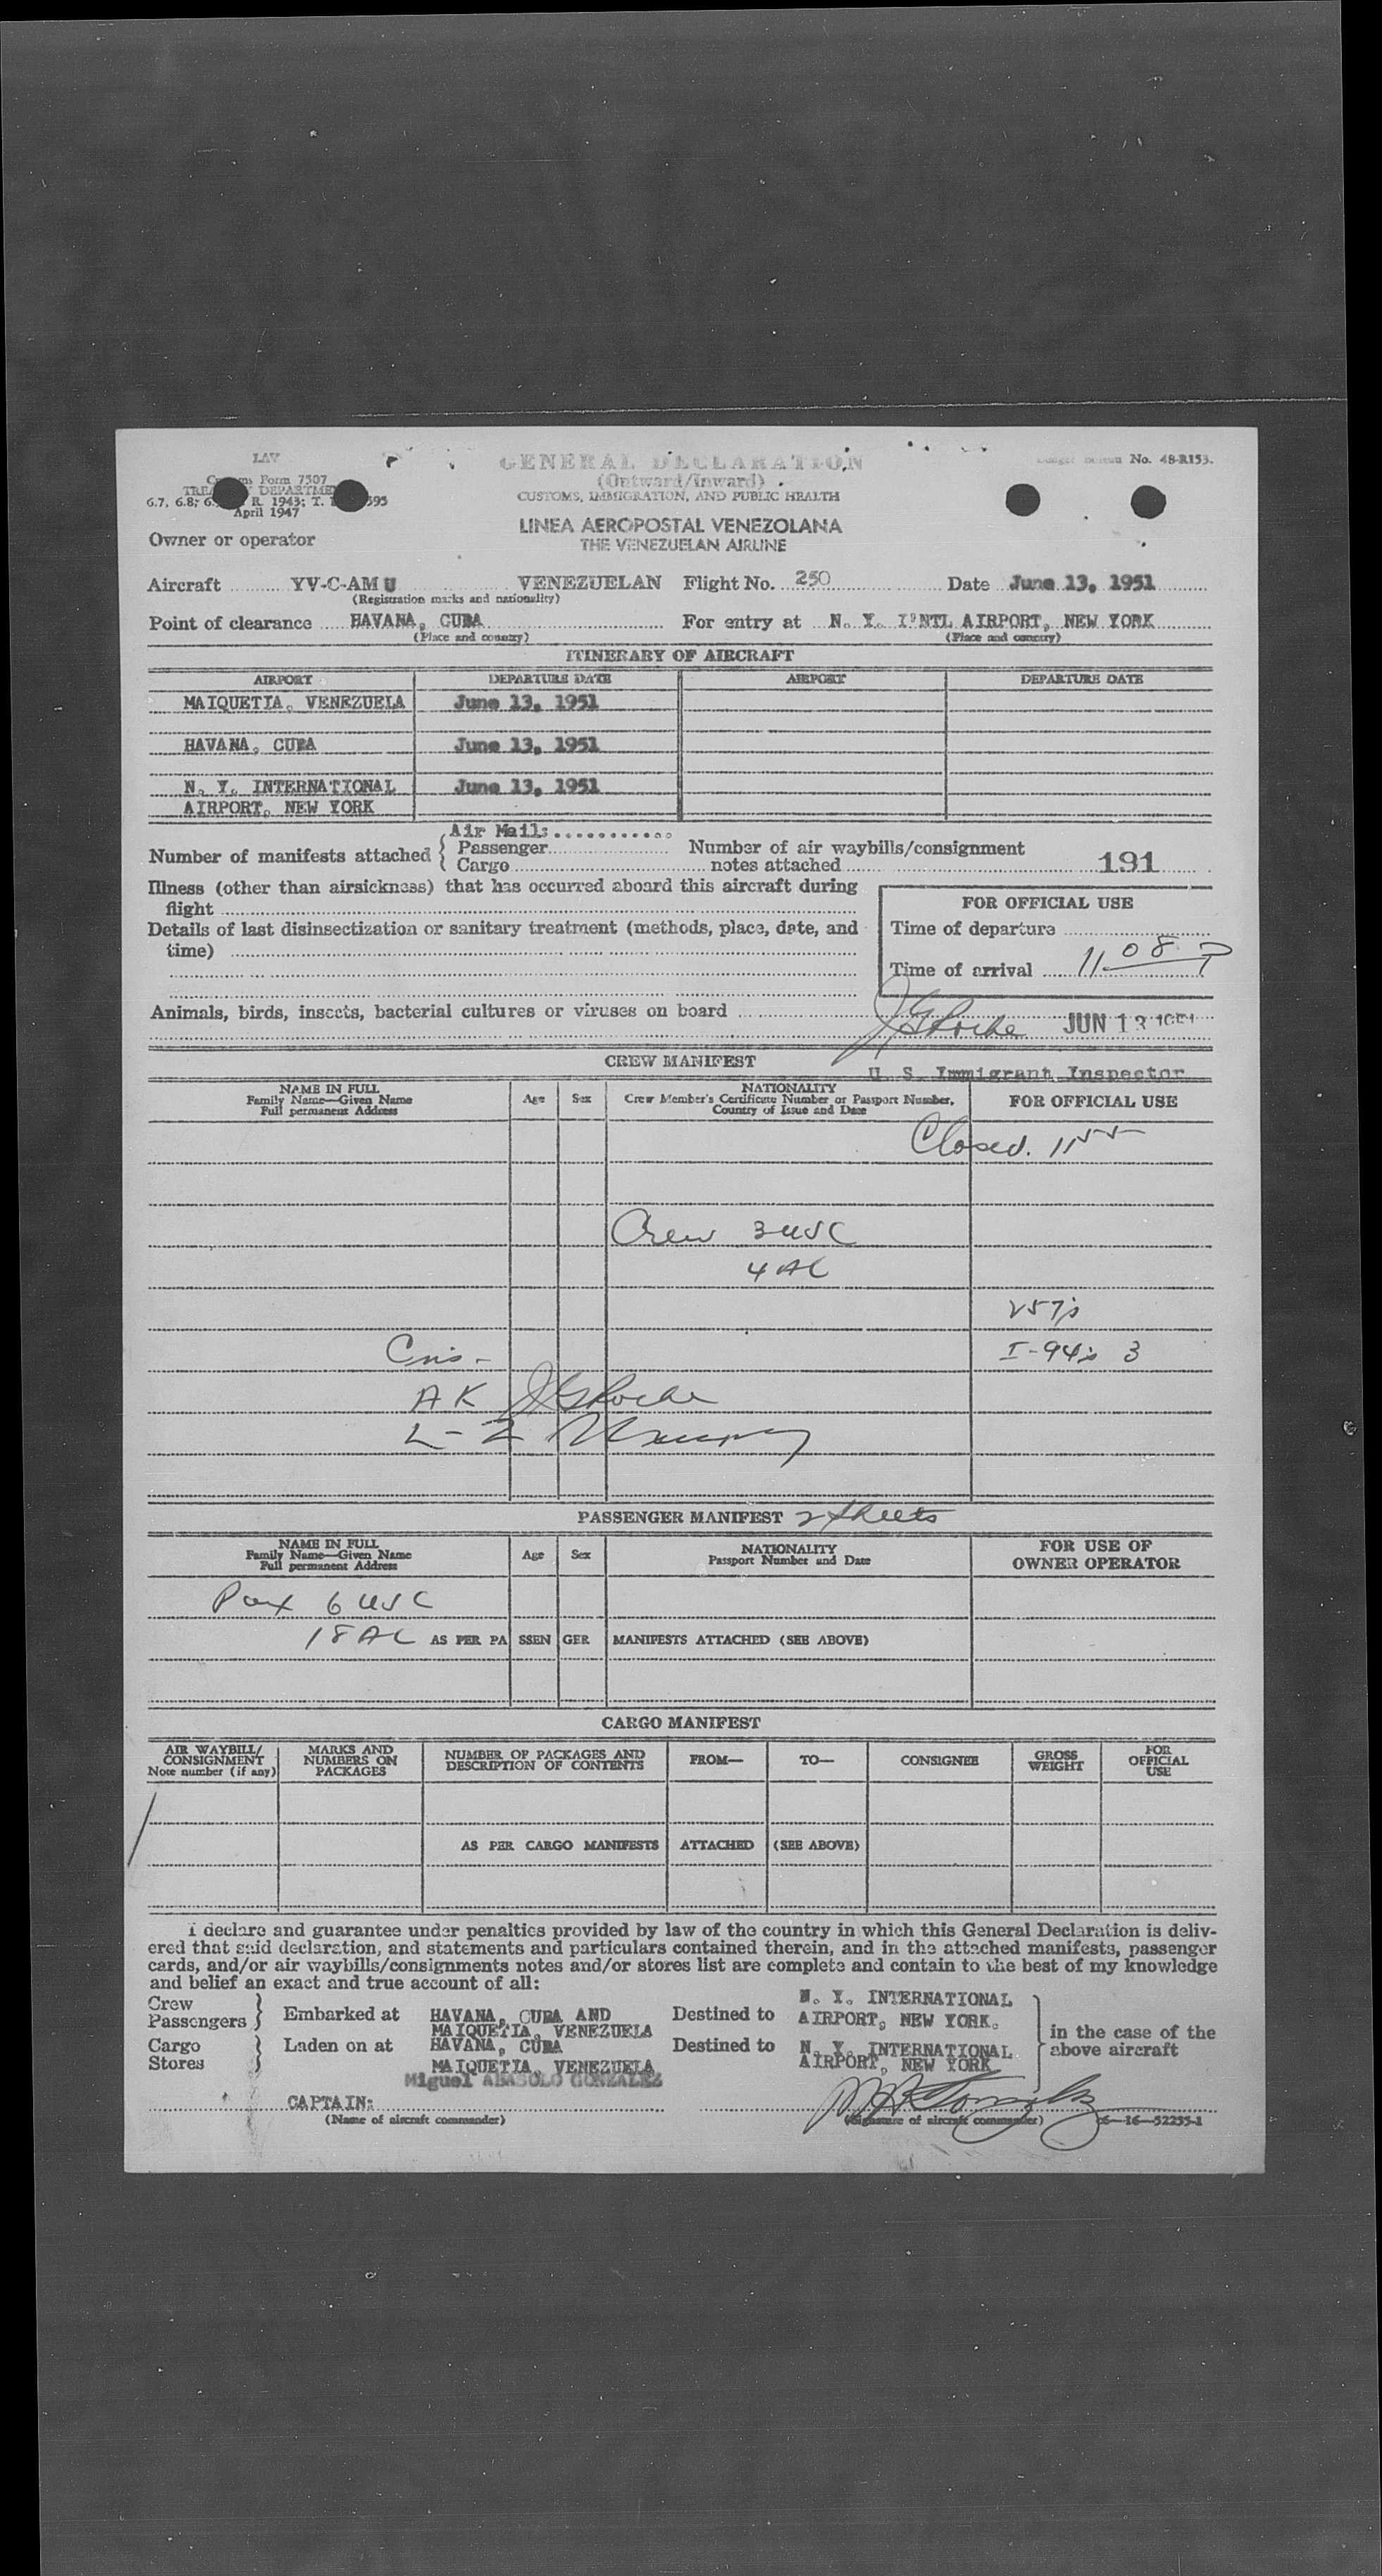 LAV
GENERAL DECLARATION
No. 48-R153.
Form 7507
(Outward/Inward)
April 1947
CUSTOMS, IMMIGRATION, AND PUBLIC HEALTH
LINEA AEROPOSTAL VENEZOLANA
THE VENEZUELAN AIRLINE
Owner or operator
Aircraft YV-C-AMU VENEZUELAN Flight No. 250 Date June 13, 1951
(Registration marks and nationality)
Point of clearance HAVANA, CUBA For entry at N. Y. I'NTL AIRPORT, NEW YORK
(Place and country) (Place and country)
ITINERARY OF AIRCRAFT
AIRPORT DEPARTURE DATE AIRPORT DEPARTURE DATE
MAIQUETIA, VENEZUELA June 13, 1951
HAVANA, CUBA June 13, 1951
N. Y. INTERNATIONAL June 13, 1951
AIRPORT, NEW YORK
Air Mail:
Number of manifests attached { Passenger Number of air waybills/consignment
Cargo notes attached 191
Illness (other than airsickness) that has occurred aboard this aircraft during
flight
FOR OFFICIAL USE
Details of last disinsectization or sanitary treatment (methods, place, date, and
time)
Time of departure
Time of arrival 11 08 P
Animals, birds, insects, bacterial cultures or viruses on board
JGRoche JUN 13 1951
CREW MANIFEST
U S Immigrant Inspector
NAME IN FULL
Family Name—Given Name
Full permanent Address
Age Sex
NATIONALITY
Crew Member's Certificate Number or Passport Number,
Country of Issue and Date
FOR OFFICIAL USE
Closed. 1155
Crew 3 USC
4 AL
257's
I-94's 3
AK JGRoche
PASSENGER MANIFEST 2 sheets
NAME IN FULL
Family Name—Given Name
Full permanent Address
Age Sex
NATIONALITY
Passport Number and Date
FOR USE OF
OWNER OPERATOR
Pax 6 USC
18 AL AS PER PASSENGER MANIFESTS ATTACHED (SEE ABOVE)
CARGO MANIFEST
AIR WAYBILL/
CONSIGNMENT
Note number (if any)
MARKS AND
NUMBERS ON
PACKAGES
NUMBER OF PACKAGES AND
DESCRIPTION OF CONTENTS
FROM—
TO—
CONSIGNEE
GROSS
WEIGHT
FOR
OFFICIAL
USE
AS PER CARGO MANIFESTS ATTACHED (SEE ABOVE)
I declare and guarantee under penalties provided by law of the country in which this General Declaration is deliv-
ered that said declaration, and statements and particulars contained therein, and in the attached manifests, passenger
cards, and/or air waybills/consignments notes and/or stores list are complete and contain to the best of my knowledge
and belief an exact and true account of all:
Crew
Passengers } Embarked at HAVANA, CUBA AND
MAIQUETIA, VENEZUELA
Destined to N. Y. INTERNATIONAL
AIRPORT, NEW YORK.
Cargo
Stores } Laden on at HAVANA, CUBA
MAIQUETIA, VENEZUELA
Destined to N. Y. INTERNATIONAL
AIRPORT, NEW YORK
in the case of the
above aircraft
Miguel ABASOLO GONZALEZ
CAPTAIN:
(Name of aircraft commander) (Signature of aircraft commander) 16—52255-1